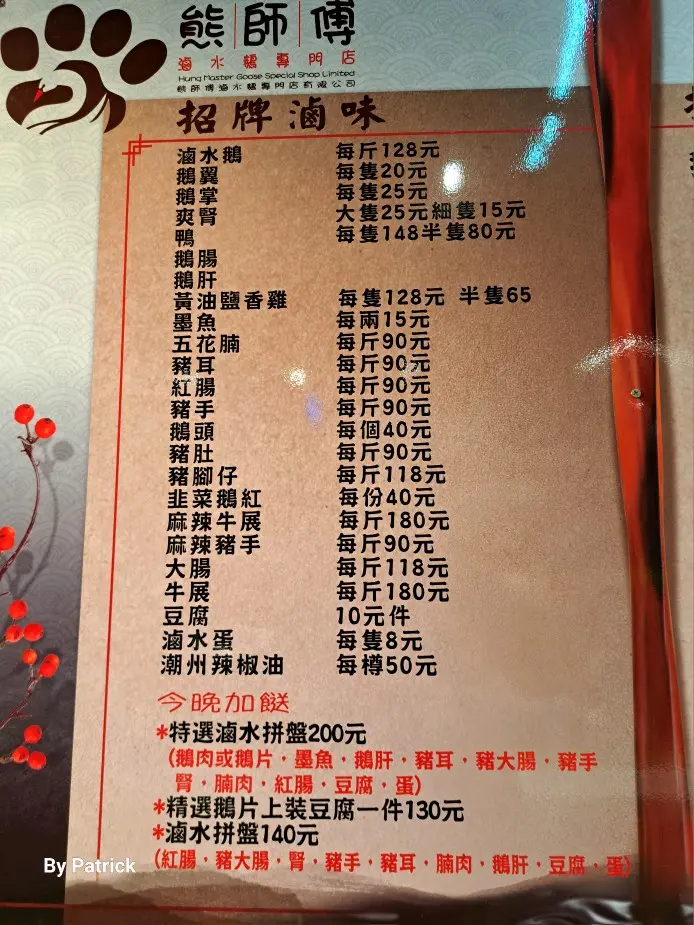 熊師傅
滷水鵝專門店
Hung Master Goose Special Shop Limited
熊師傅滷水鵝專門店有限公司
招牌滷味
滷水鵝 每斤128元
鵝翼 每隻20元
鵝掌 每隻25元
爽腎 大隻25元細隻15元
鴨 每隻148半隻80元
鵝腸
鵝肝
黃油鹽香雞 每隻128元 半隻65
墨魚 每兩15元
五花腩 每斤90元
豬耳 每斤90元
紅腸 每斤90元
豬手 每斤90元
鵝頭 每個40元
豬肚 每斤90元
豬腳仔 每斤118元
韭菜鵝紅 每份40元
麻辣牛展 每斤180元
麻辣豬手 每斤90元
大腸 每斤118元
牛展 每斤180元
豆腐 10元件
滷水蛋 每隻8元
潮州辣椒油 每樽50元
今晚加餸
*特選滷水拼盤200元
(鵝肉或鵝片．墨魚．鵝肝．豬耳．豬大腸．豬手
腎．腩肉．紅腸．豆腐．蛋)
*精選鵝片上裝豆腐一件130元
*滷水拼盤140元
(紅腸．豬大腸．腎．豬手．豬耳．腩肉．鵝肝．豆腐．蛋)
By Patrick